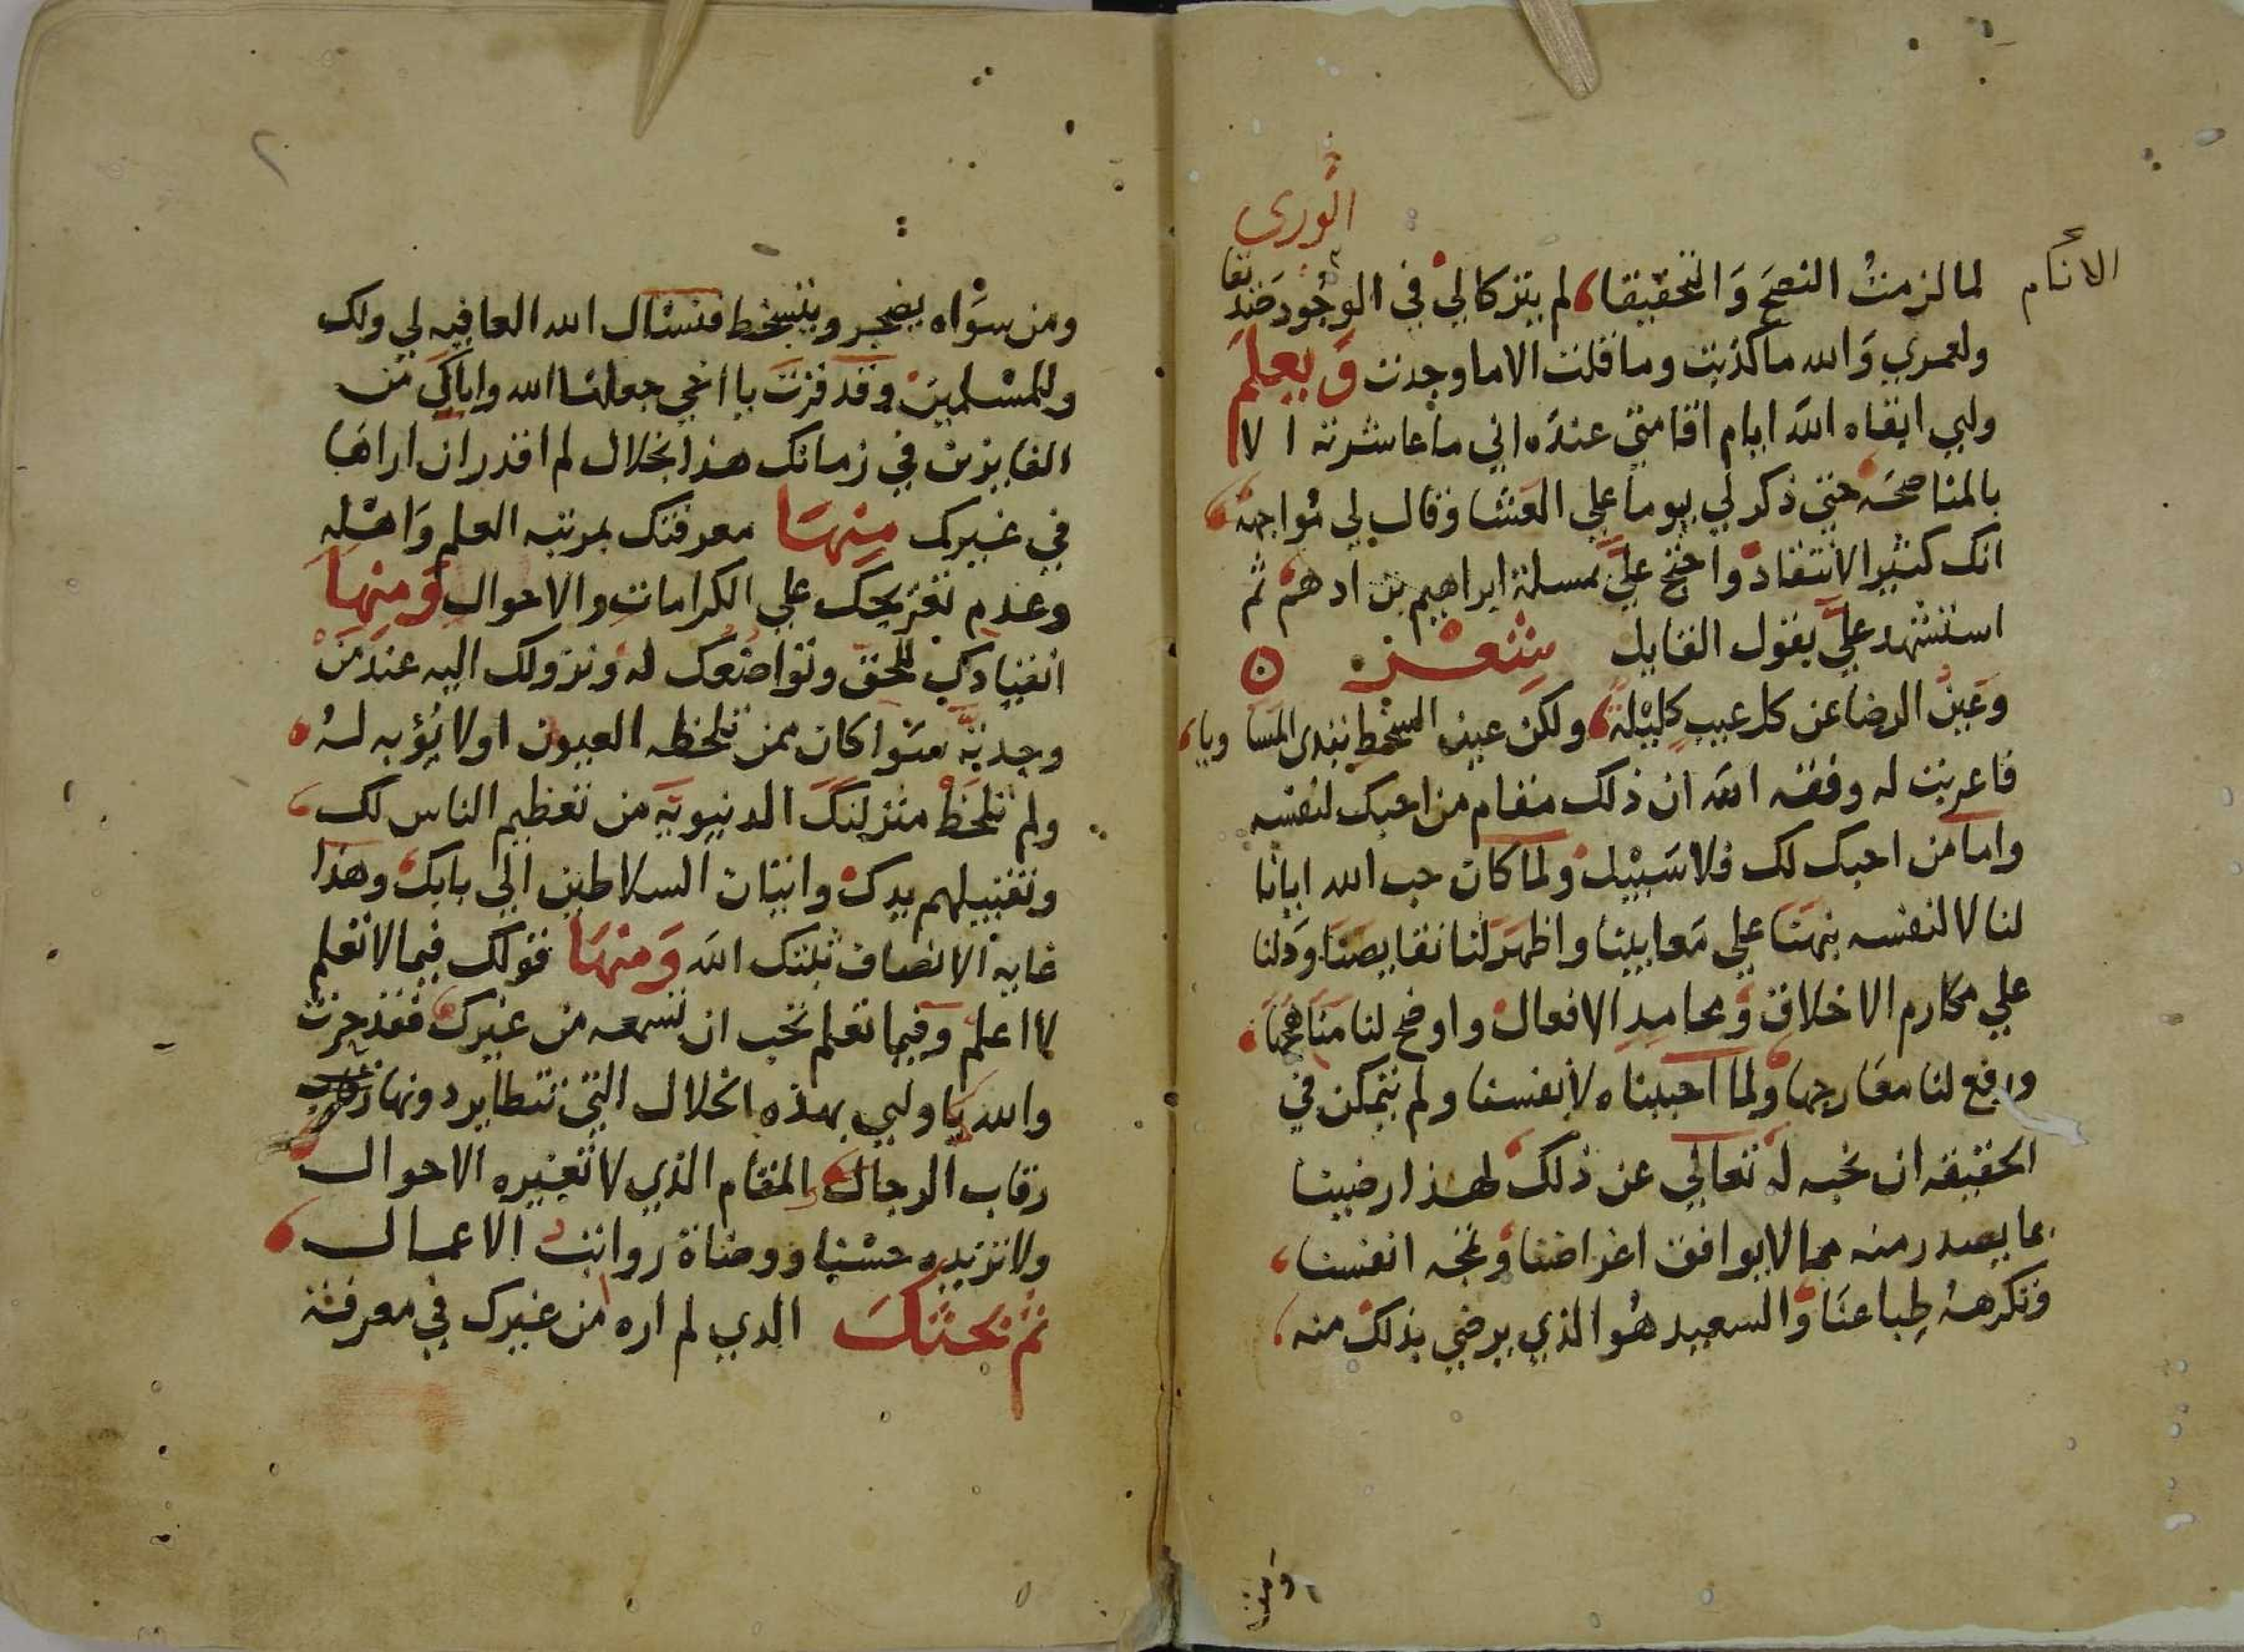 الورى
الانام
لما لزمت النصح والتحقيقا، لم يتركا لي في الوجود صديقا
ولعمري والله ما كذبت وما قلت الا ما وجدت ويعلم
وليي ابقاه الله ايام اقامتي عنده اني ما عاشرته الا
بالمناصحه حتى ذكر لي يوما علي العشا وقال لي مواجهة
انك كثير الانتقاد واحتج علي بمسلة ابراهيم بن ادهم ثم
استشهد علي بقول القايل شعر
وعين الرضا عن كل عيب كليلة، ولكن عين السخط تبدي المساويا،
فاعربت له وفقه الله ان ذلك مقام من احبك لنفسه
واما من احبك لك فلا سبيل ولما كان حب الله ايانا
لنا لا لنفسه نبهنا علي معايبنا واظهر لنا نقايصنا ودلنا
علي مكارم الاخلاق ومحامد الافعال واوضح لنا مناهجها
ورفع لنا معارجها ولما احببناه لانفسنا ولم يتمكن في
الحقيقه ان نحبه له تعالي عن ذلك لهذا رضينا
بما يصدر منه مما لا يوافق اغراضنا وتمجه انفسنا،
وتكرهه طباعنا والسعيد هو الذي يرضي بذلك منه،
ومن
٢
ومن سواه يضجر ويتسخط فنسال الله العافيه لي ولك
وللمسلمين وقد فزت يا اخي جعلنا الله واياك من
الفايزين في زمانك هذا بخلال لم اقدر ان اراها
في غيرك منها معرفتك بمرتبه العلم واهله
وعدم تعريجك علي الكرامات والاحوال ومنها
انقيادك للحق وتواضعك له ونزولك اليه عند من
وجدته سوا كان ممن تلحظه العيون او لا يؤبه له
ولم تلحظ منزلتك الدنيويه من تعظيم الناس لك،
وتقبيلهم يدك واتيان السلاطين الي بابك وهذا
غايه الانصاف ثبتك الله ومنها قولك فيما لا تعلم
لا اعلم وفيما تعلم تحب ان تسمعه من غيرك فقد حزت
والله يا وليي بهذه الخلال التي تتطاير دونها
رقاب الرجال المقام الذي لا تغيره الاحوال
ولا تزيده حسنا ووضاة رواتب الاعمال
ثم بحثك الذي لم اره من غيرك في معرفة